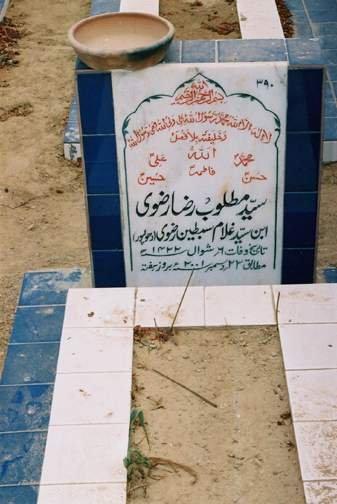 ۳۹۰
بسم اللہ الرحمن الرحیم
لا الہ الا اللہ محمد رسول اللہ علی ولی اللہ وصی رسول اللہ
وخلیفتہ بلا فصل
اللہ
محمدؐ علیؑ
فاطمہؑ
حسنؑ حسینؑ
سید مطلوب رضا رضوی
ابن سید غلام سبطین رضوی
تاریخ وفات ۶ شوال ۱۴۲۲ھ
مطابق ۲۲ دسمبر ۲۰۰۱ء بروز ہفتہ